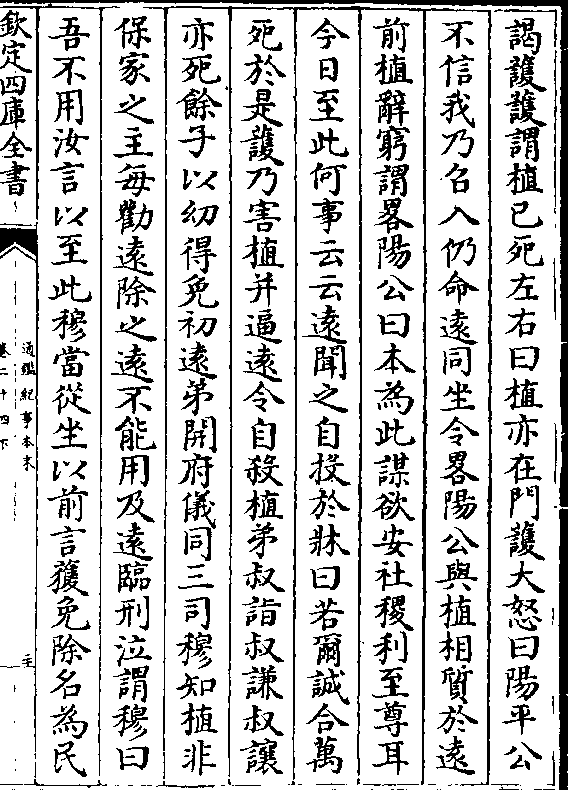 謁護護謂植已死左右曰植亦在門護大怒曰陽平公
不信我乃召入仍命遠同坐令畧陽公與植相質於遠
前植辭窮謂畧陽公曰本為此謀欲安社稷利至尊耳
今日至此何事云云遠聞之自投於牀曰若爾誠合萬
死於是護乃害植并逼遠令自殺植弟叔詣叔謙叔讓
亦死餘子以幼得免初遠弟開府儀同三司穆知植非
保家之主每勸遠除之遠不能用及遠臨刑泣謂穆曰
吾不用汝言以至此穆當從坐以前言獲免除名為民
欽定四庫全書
通鑑紀事本末
卷二十四下